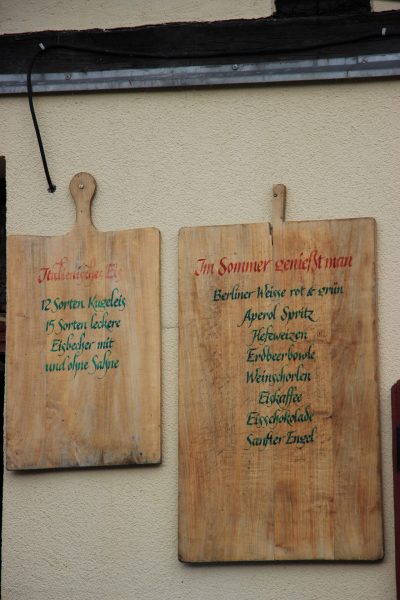 Italienisches Eis
12 Sorten Kugeleis
15 Sorten leckere
Eisbecher mit
und ohne Sahne
Im Sommer genießt man
Berliner Weisse rot & grün
Aperol Spritz
Hefeweizen
Erdbeerbowle
Weinschorlen
Eiskaffee
Eisschokolade
Sanfter Engel